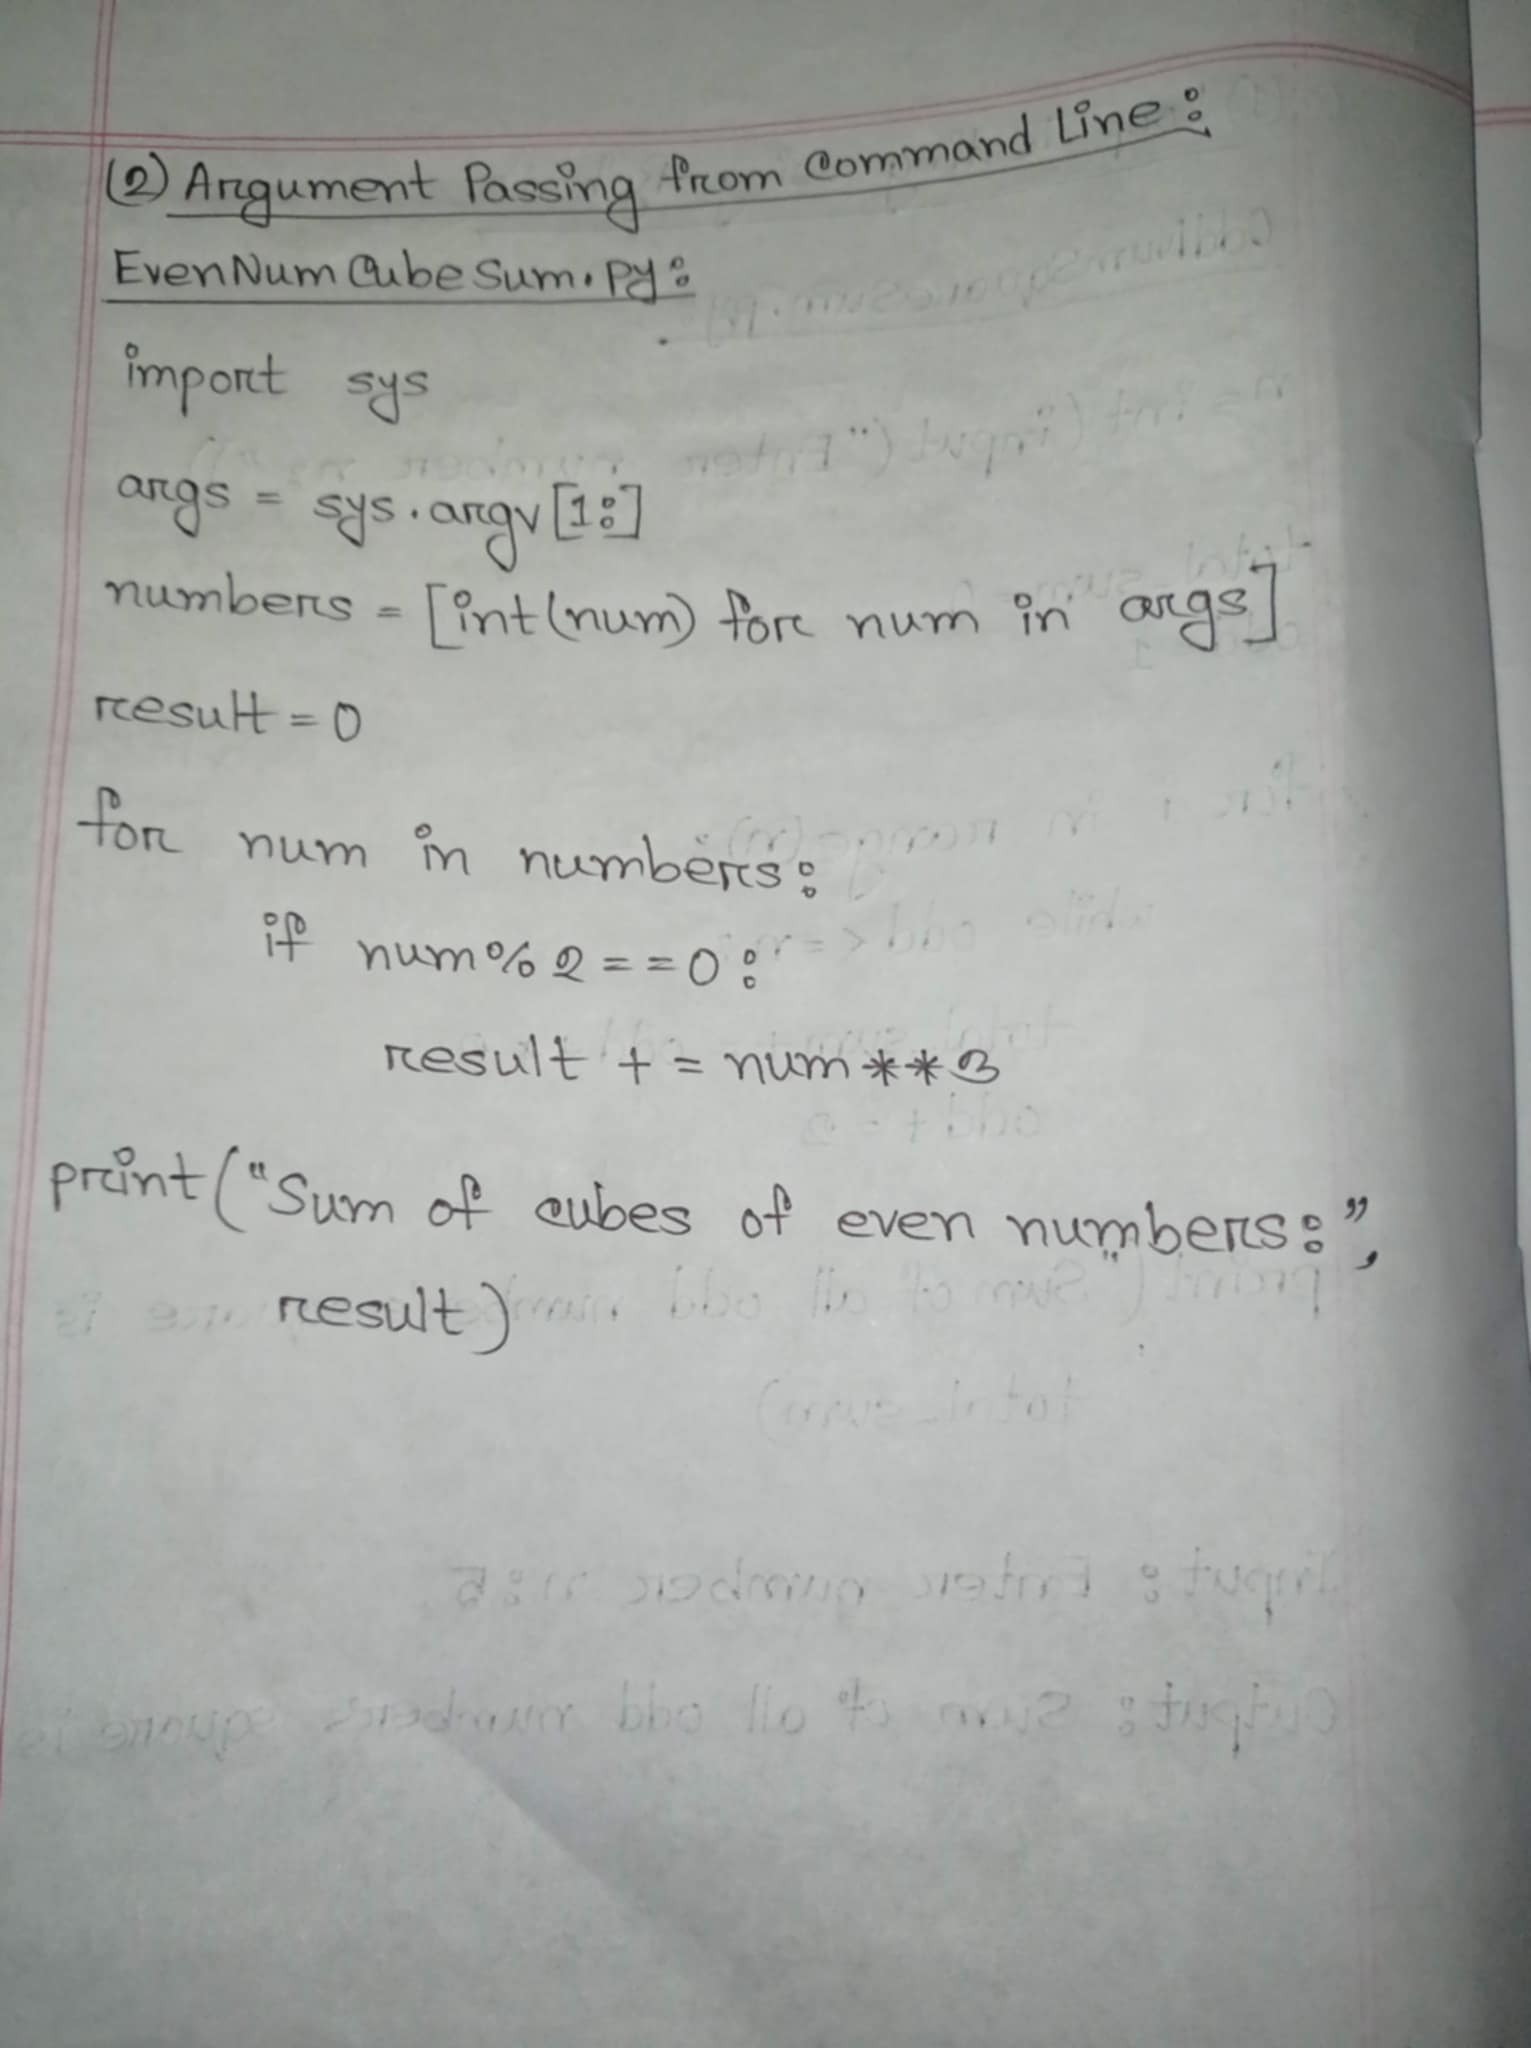 (2) Argument Passing from Command Line:
EvenNumCubeSum.py:
import sys
args = sys.argv[1:]
numbers = [int(num) for num in args]
result = 0
for num in numbers:
if num%2==0:
result += num**3
print("Sum of cubes of even numbers:",
result)